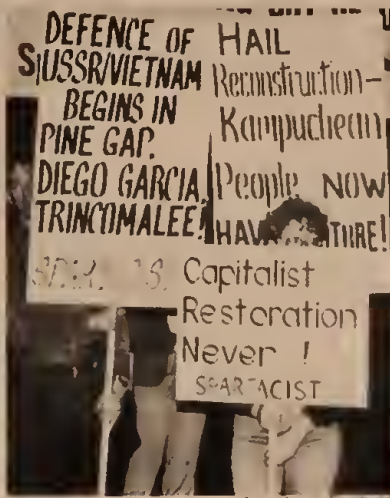 DEFENCE OF
USSR/VIETNAM
BEGINS IN
PINE GAP,
DIEGO GARCIA,
TRINCOMALEE!
HAIL
Reconstruction-
Kampuchean
People NOW
HAVE
Capitalist
Restoration
Never !
SPARTACIST